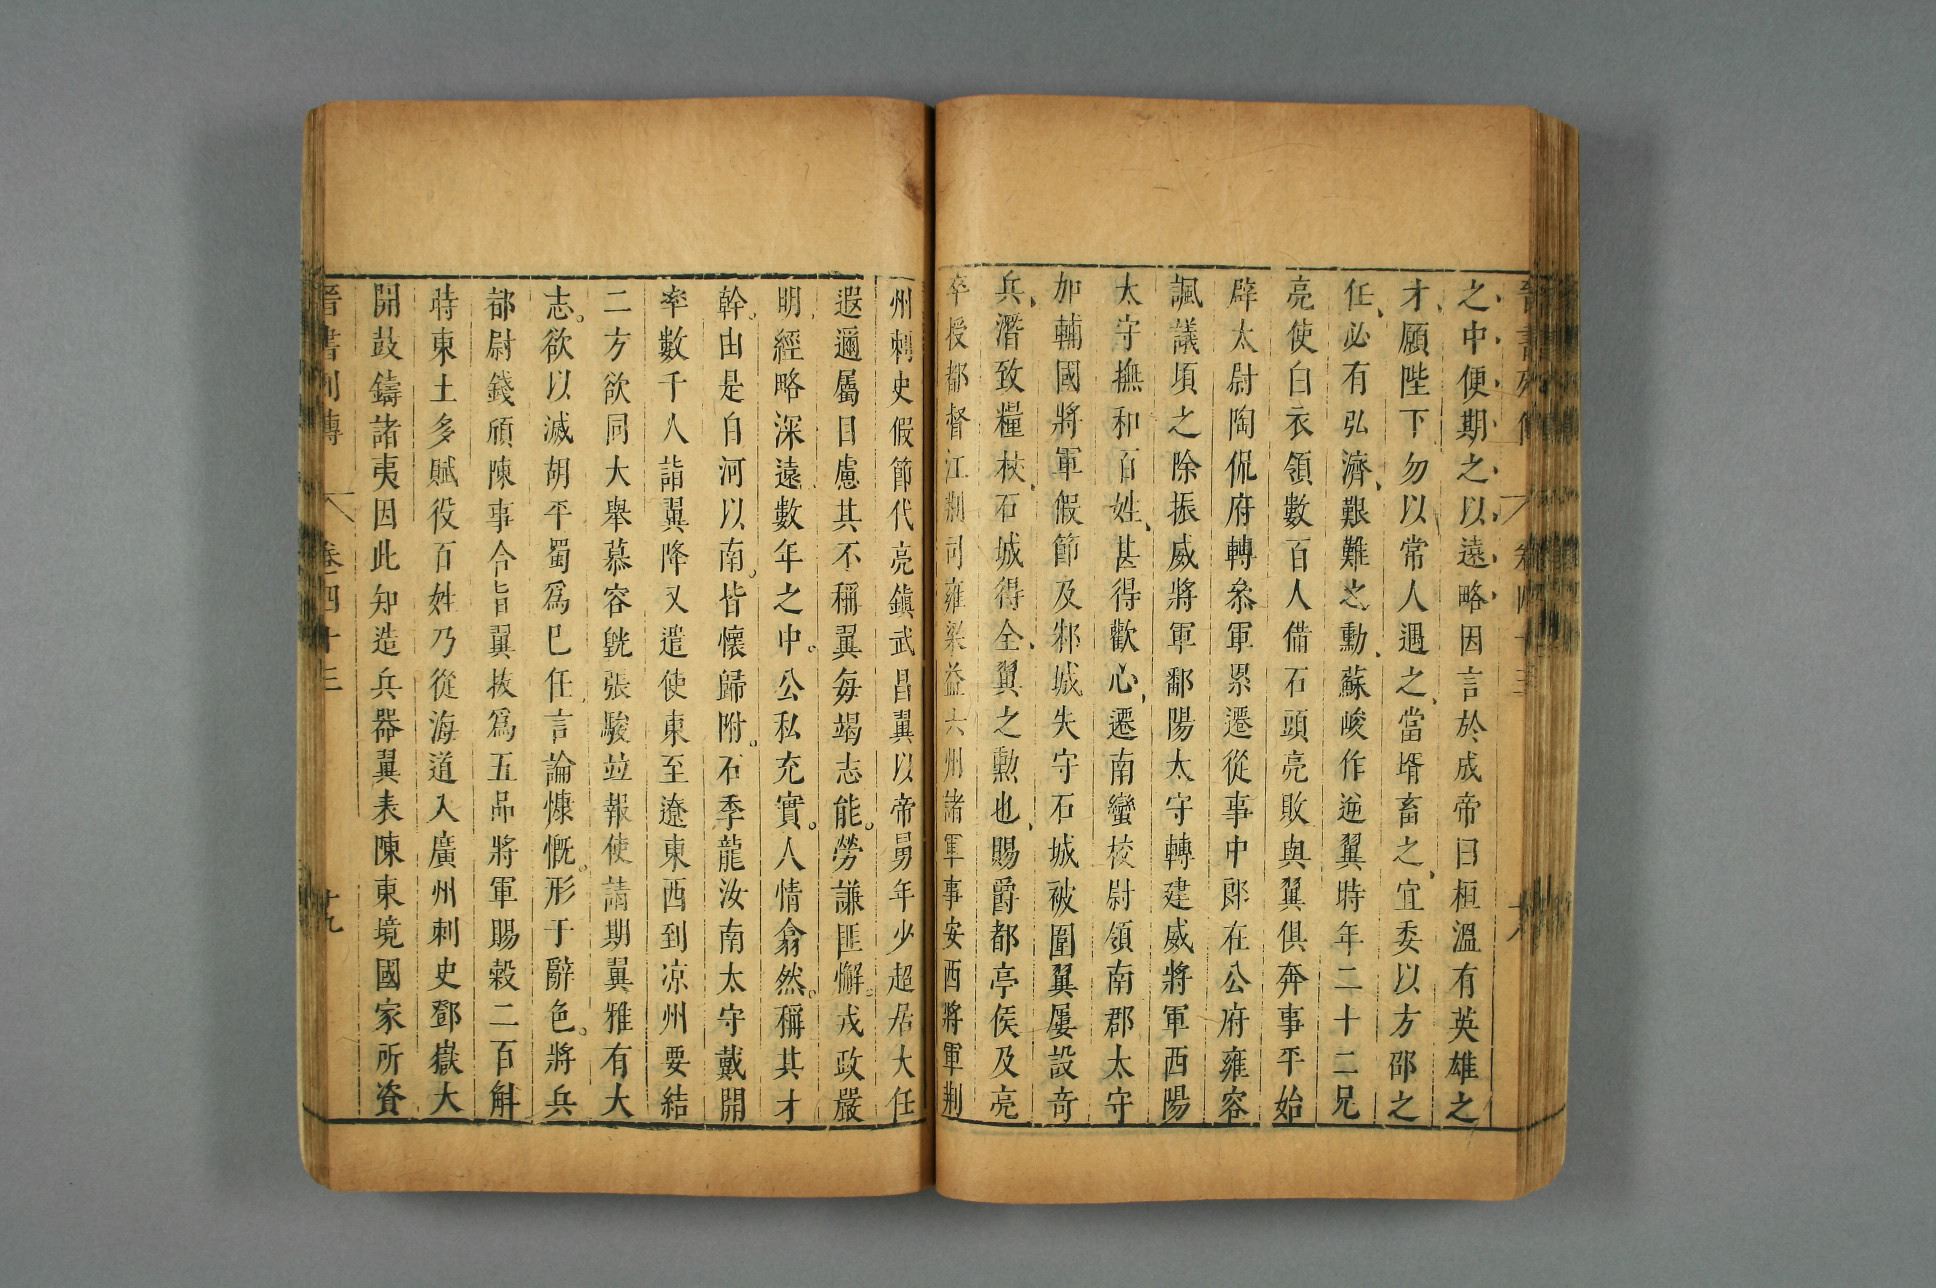 晉書列傳 卷四十三 十八
之中便期之以遠略因言於成帝曰桓溫有英雄之
才願陛下勿以常人遇之當壻畜之宜委以方邵之
任必有弘濟艱難之勳蘇峻作逆翼時年二十二兄
亮使白衣領數百人備石頭亮敗與翼俱奔事平始
辟太尉陶侃府轉叅軍累遷從事中郎在公府雍容
諷議頃之除振威將軍鄱陽太守轉建威將軍西陽
太守撫和百姓甚得歡心遷南蠻校尉領南郡太守
加輔國將軍假節及邾城失守石城被圍翼屢設奇
兵潛致糧杖石城得全翼之勳也賜爵都亭侯及亮
卒授都督江荆司雍梁益六州諸軍事安西將軍荆
州刺史假節代亮鎮武昌翼以帝舅年少超居大任
遐邇屬目慮其不稱翼每竭志能。勞謙匪懈。戎政嚴
明經略深遠數年之中。公私充實。人情翕然。稱其才
幹。由是自河以南。皆懷歸附。石季龍汝南太守戴開
率數千人詣翼降又遣使東至遼東西到凉州要結
二方欲同大舉慕容皝張駿竝報使請期翼雅有大
志。欲以滅胡平蜀爲巳任言論慷慨。形于辭色。將兵
都尉錢頎陳事合旨翼拔爲五品將軍賜穀二百斛
時東土多賦役百姓乃從海道入廣州刺史鄧嶽大
開鼓鑄諸夷因此知造兵器翼表陳東境國家所資
晉書列傳 卷四十三 十九